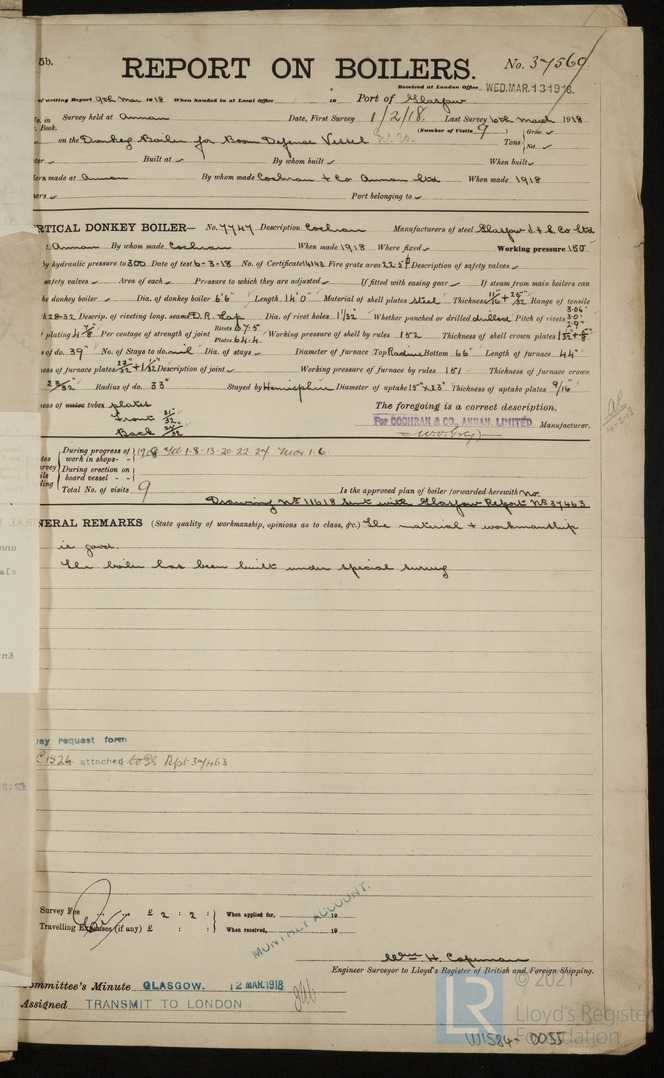 5b.
REPORT ON BOILERS.
No. 37560
Received at London Office WED. MAR. 13 1918
of writing Report 9th Mar 1918 When handed in at Local Office 19 Port of Glasgow
in Survey held at Annan Date, First Survey 1/2/18. Last Survey 6th March 1918
Book. (Number of Visits 9 ) Gross
on the Donkey Boiler for Boom Defence Vessel Tons Net
Built at By whom built When built
made at Annan By whom made Cochran & Co Annan Ltd When made 1918
Port belonging to
RTICAL DONKEY BOILER— No. 7747 Description Cochran Manufacturers of steel Glasgow I. & S. Co Ltd
Annan By whom made Cochran When made 1918 Where fixed Working pressure 150
by hydraulic pressure to 300 Date of test 6-3-18 No. of Certificate 14143 Fire grate area 22.5 Description of safety valves
safety valves Area of each Pressure to which they are adjusted If fitted with easing gear If steam from main boilers can
donkey boiler Dia. of donkey boiler 6'6" Length 14'0" Material of shell plates steel Thickness Range of tensile
28-32 Descrip. of riveting long. seams D.R. Lap Dia. of rivet holes 1 1/32" Whether punched or drilled drilled Pitch of rivets 3.06" 3.0" 2.9"
plating 4 7/8 Per centage of strength of joint Rivets 67.5 Plates 64.4 Working pressure of shell by rules 152 Thickness of shell crown plates
of do. 39" No. of Stays to do. nil Dia. of stays Diameter of furnace Top Radius Bottom 66" Length of furnace 44"
ess of furnace plates Description of joint Working pressure of furnace by rules 151 Thickness of furnace crown
23/32 Radius of do. 33" Stayed by Hemisphere Diameter of uptake 15" x 23" Thickness of uptake plates 9/16"
ess of water tubes plates The foregoing is a correct description,
Front 31/32 For COCHRAN & CO., ANNAN, LIMITED Manufacturer.
Back
During progress of work in shops - - 1918 Feb 1-8-13-20-22-27 Mar 1-6
During erection on board vessel - -
Total No. of visits 9 Is the approved plan of boiler forwarded herewith No.
Drawing No 11618 sent with Glasgow Report No 37463
NERAL REMARKS (State quality of workmanship, opinions as to class, &c.) The material & workmanship
is good.
The boiler has been built under special survey
vey request form
1524 attached to Gls Rpt 37463
Survey Fee £ 2 : 2 : When applied for, 19
Travelling Expenses (if any) £ : : When received, 19
MONTHLY ACCOUNT.
Wm H. Copeman
Engineer Surveyor to Lloyd's Register of British and Foreign Shipping.
ommittee's Minute GLASGOW. 12 MAR. 1918
Assigned TRANSMIT TO LONDON
© 2021
LR Lloyd's Register
Foundation
W1584-0055